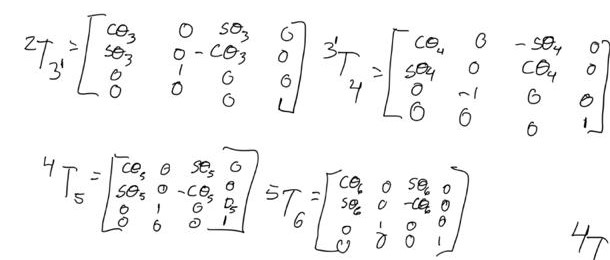 ²T₃' = [ cθ₃ 0 sθ₃ 0
sθ₃ 0 -cθ₃ 0
0 1 0 0
0 0 0 1 ]
³'T₄ = [ cθ₄ 0 -sθ₄ 0
sθ₄ 0 cθ₄ 0
0 -1 0 0
0 0 0 1 ]
⁴T₅ = [ cθ₅ 0 sθ₅ 0
sθ₅ 0 -cθ₅ 0
0 1 0 D₅
0 0 0 1 ]
⁵T₆ = [ cθ₆ 0 sθ₆ 0
sθ₆ 0 -cθ₆ 0
0 1 0 0
0 0 0 1 ]
4T